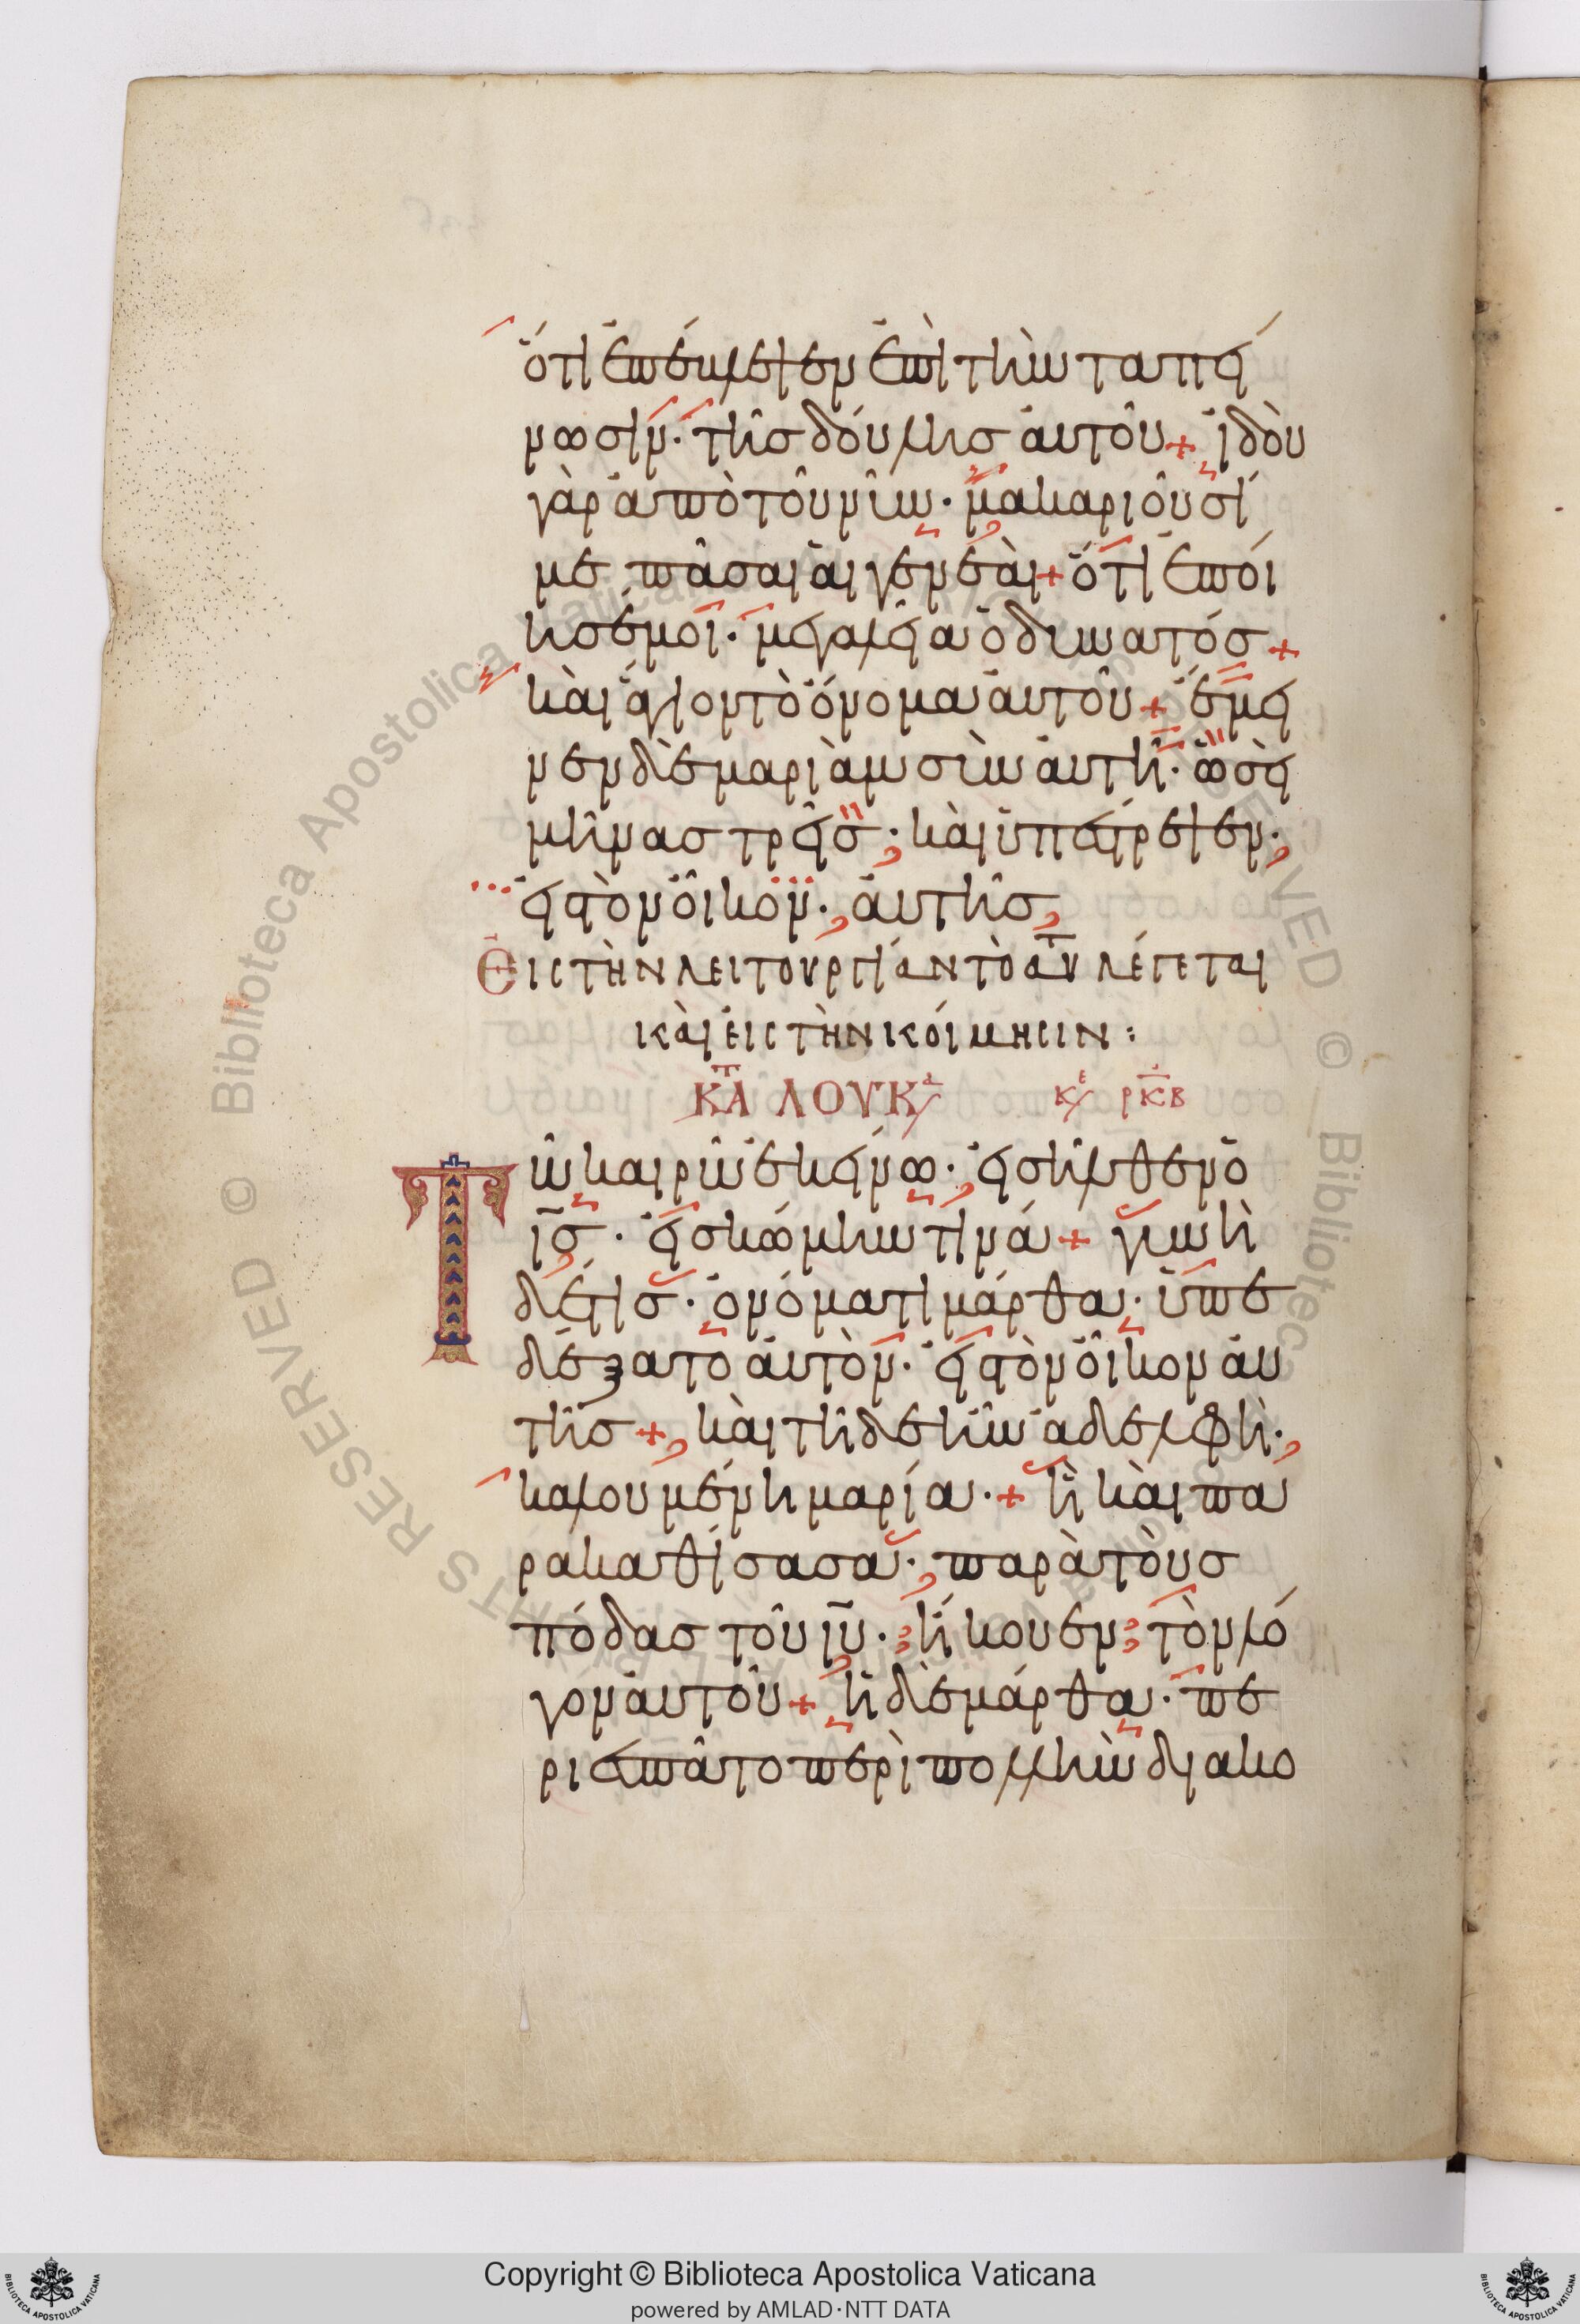 ὅτι ἐπέβλεψεν ἐπὶ τὴν ταπεί
νωσιν· τῆς δούλης αὐτοῦ + ἰδοὺ
γὰρ ἀπὸ τοῦ νῦν· μακαριοῦσί
με πᾶσαι αἱ γενεὰι + ὅτι ἐποί
ησέ μοι· μεγαλεῖα ὁ δυνατός +
κὰι ἅγιον τὸ ὄνομα αὐτοῦ + ἔμει
νεν δὲ μαριὰμ σὺν αὐτῆ· ὡσεὶ
μῆνας τρεῖς· κὰι ὑπέστρεψεν·
εἰς τὸν οἶκον· αὐτῆς
Εις τὴν λειτουργίαν τὸ αυτ λέγεται
κὰι εἰς τὴν κόιμησιν:
ΚΑΤ ΛΟΥΚ κε ρκβ
Τῶ καιρῶ ἐκείνω· εἰσῆλθεν ὁ
ις· εἰς κώμην τινά + γυνὴ
δέ τις· ὀνόματι μάρθα· ὑπε
δέξατο αὐτὸν· εἰς τὸν οἶκον αὐ
τῆς + κὰι τῆδε ἦν ἀδελφὴ·
καλουμένη μαρία· + ἣ κὰι πα
ρακαθίσασα· παρὰ τοὺς
πόδας τοῦ ιυ· ἤκουεν τὸν λό
γον αὐτοῦ + ἡ δὲ μάρθα· πε
ριεσπᾶτο περὶ πολλὴν διακο
Copyright © Biblioteca Apostolica Vaticana
powered by AMLAD·NTT DATA